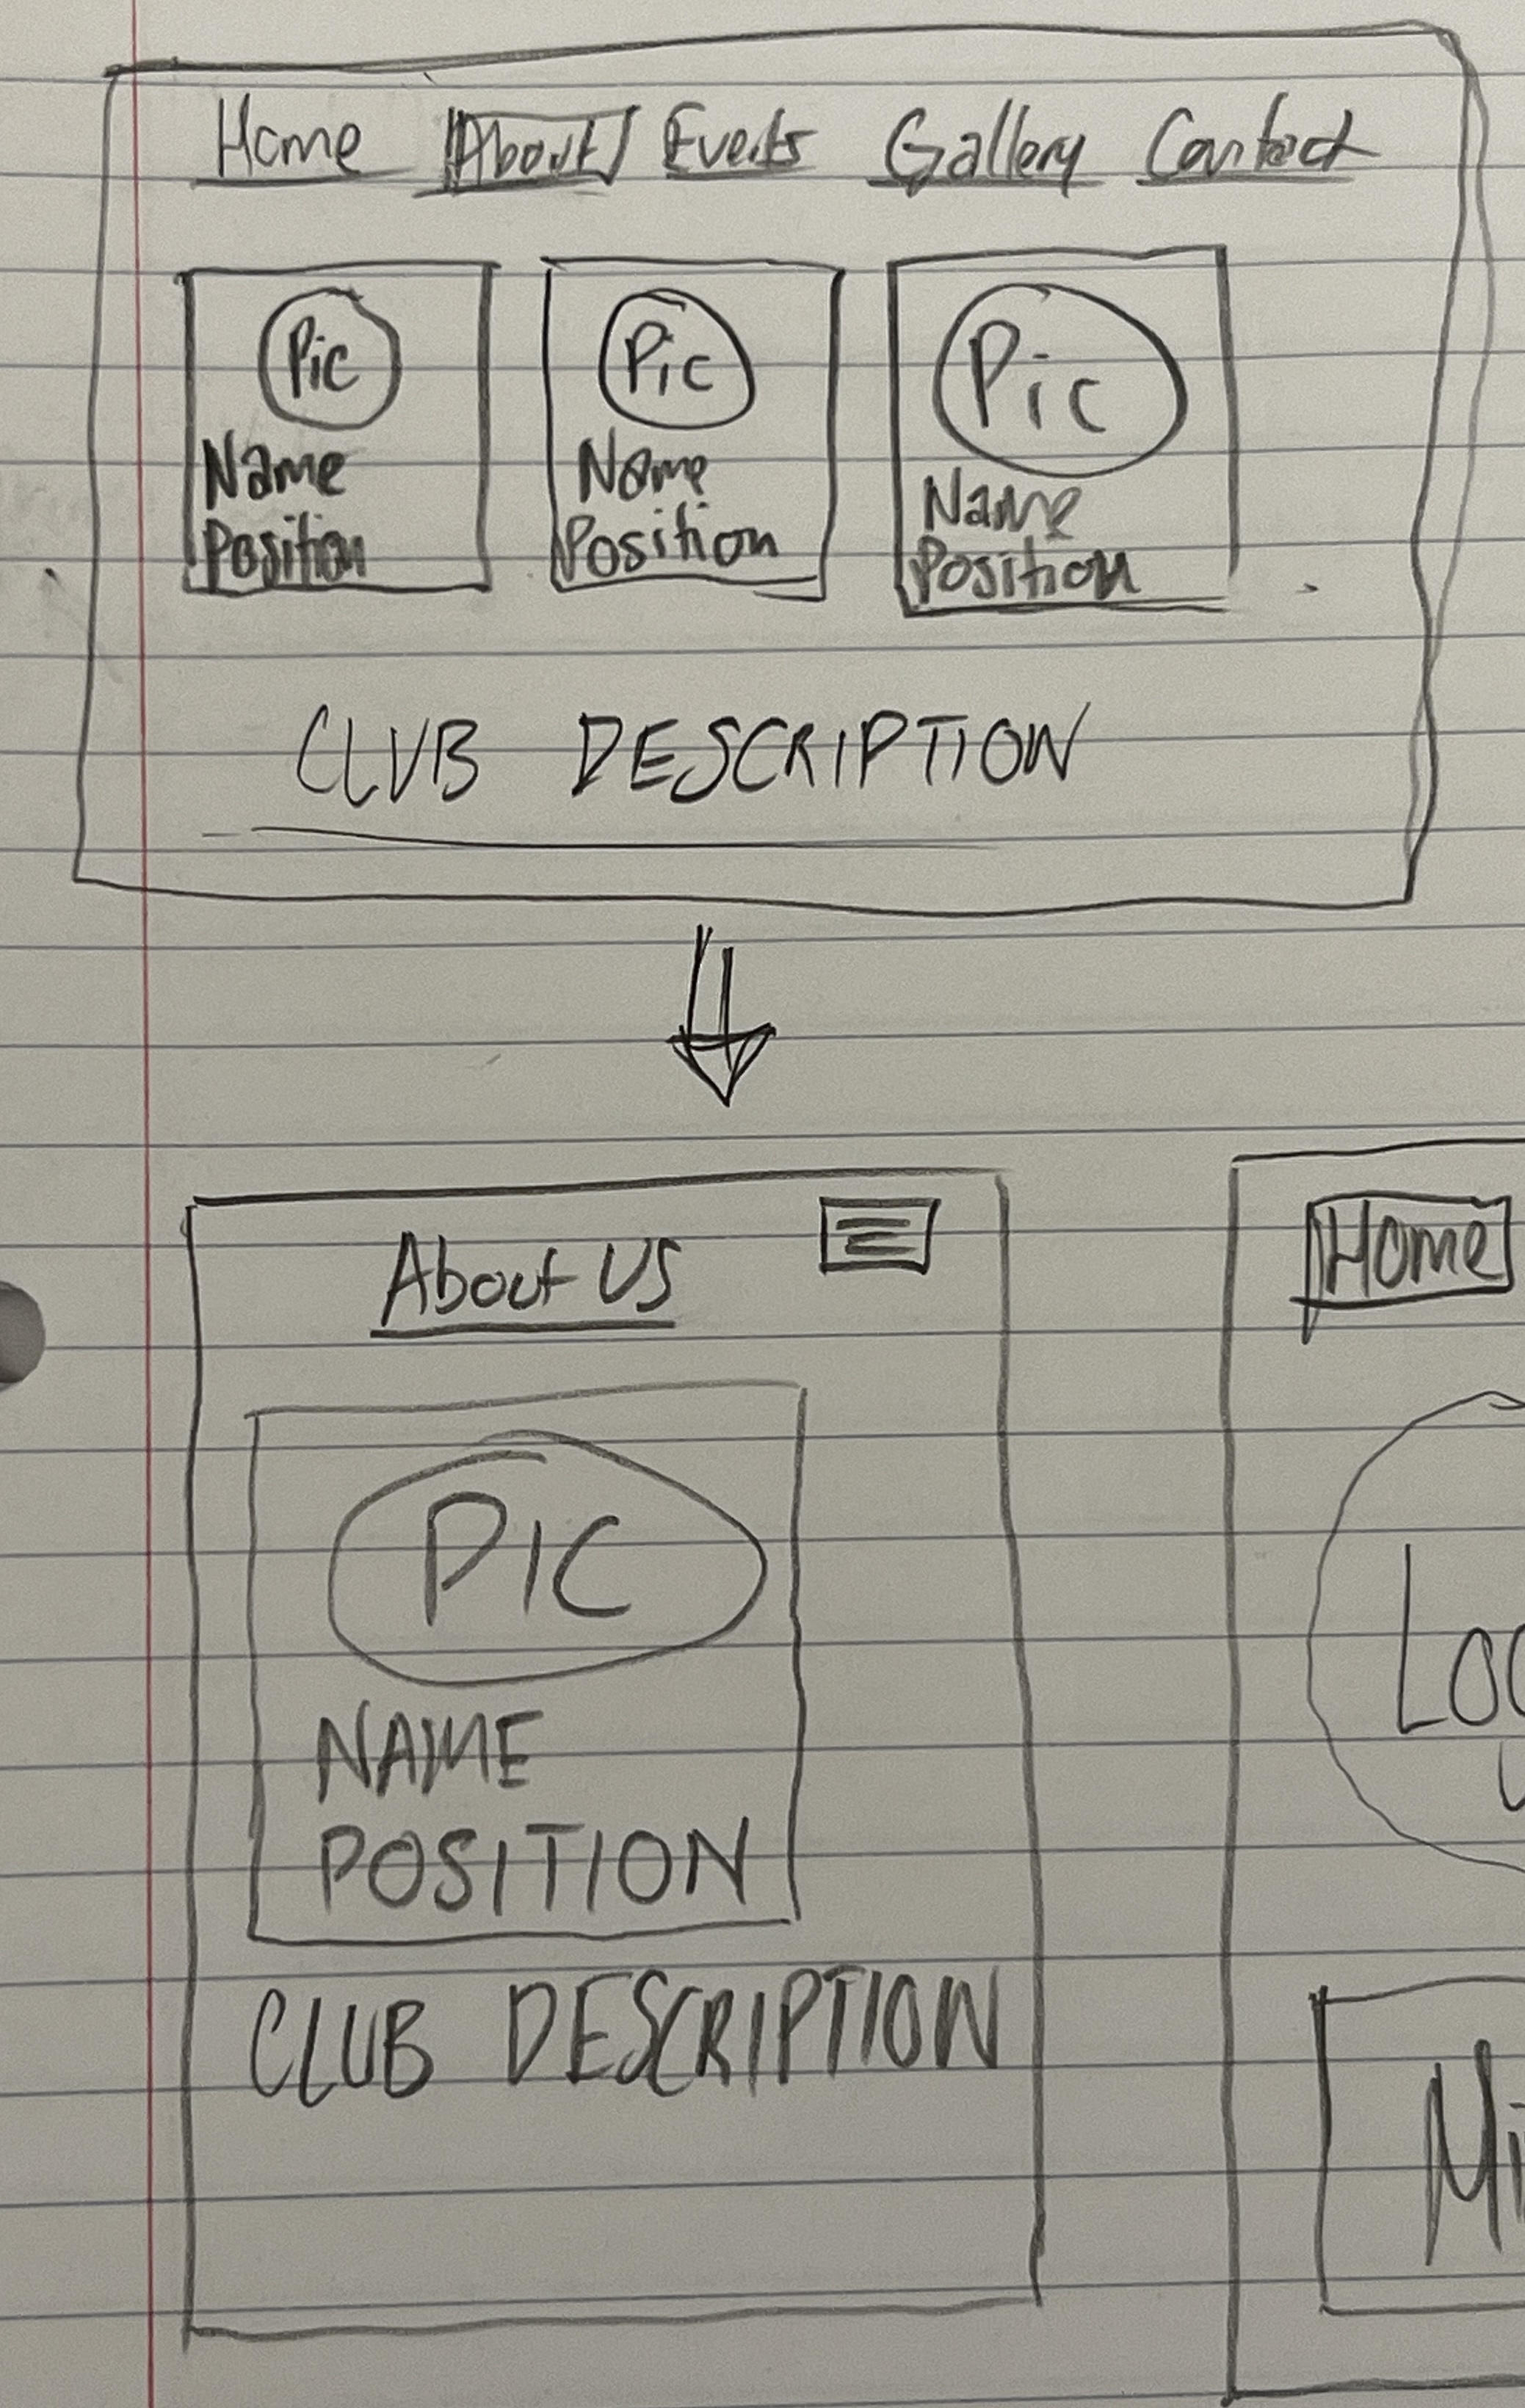 Home About Events Gallery Contact
Pic Pic Pic
Name Name Name
Position Position Position
CLUB DESCRIPTION
About US
PIC
NAME
POSITION
CLUB DESCRIPTION
Home